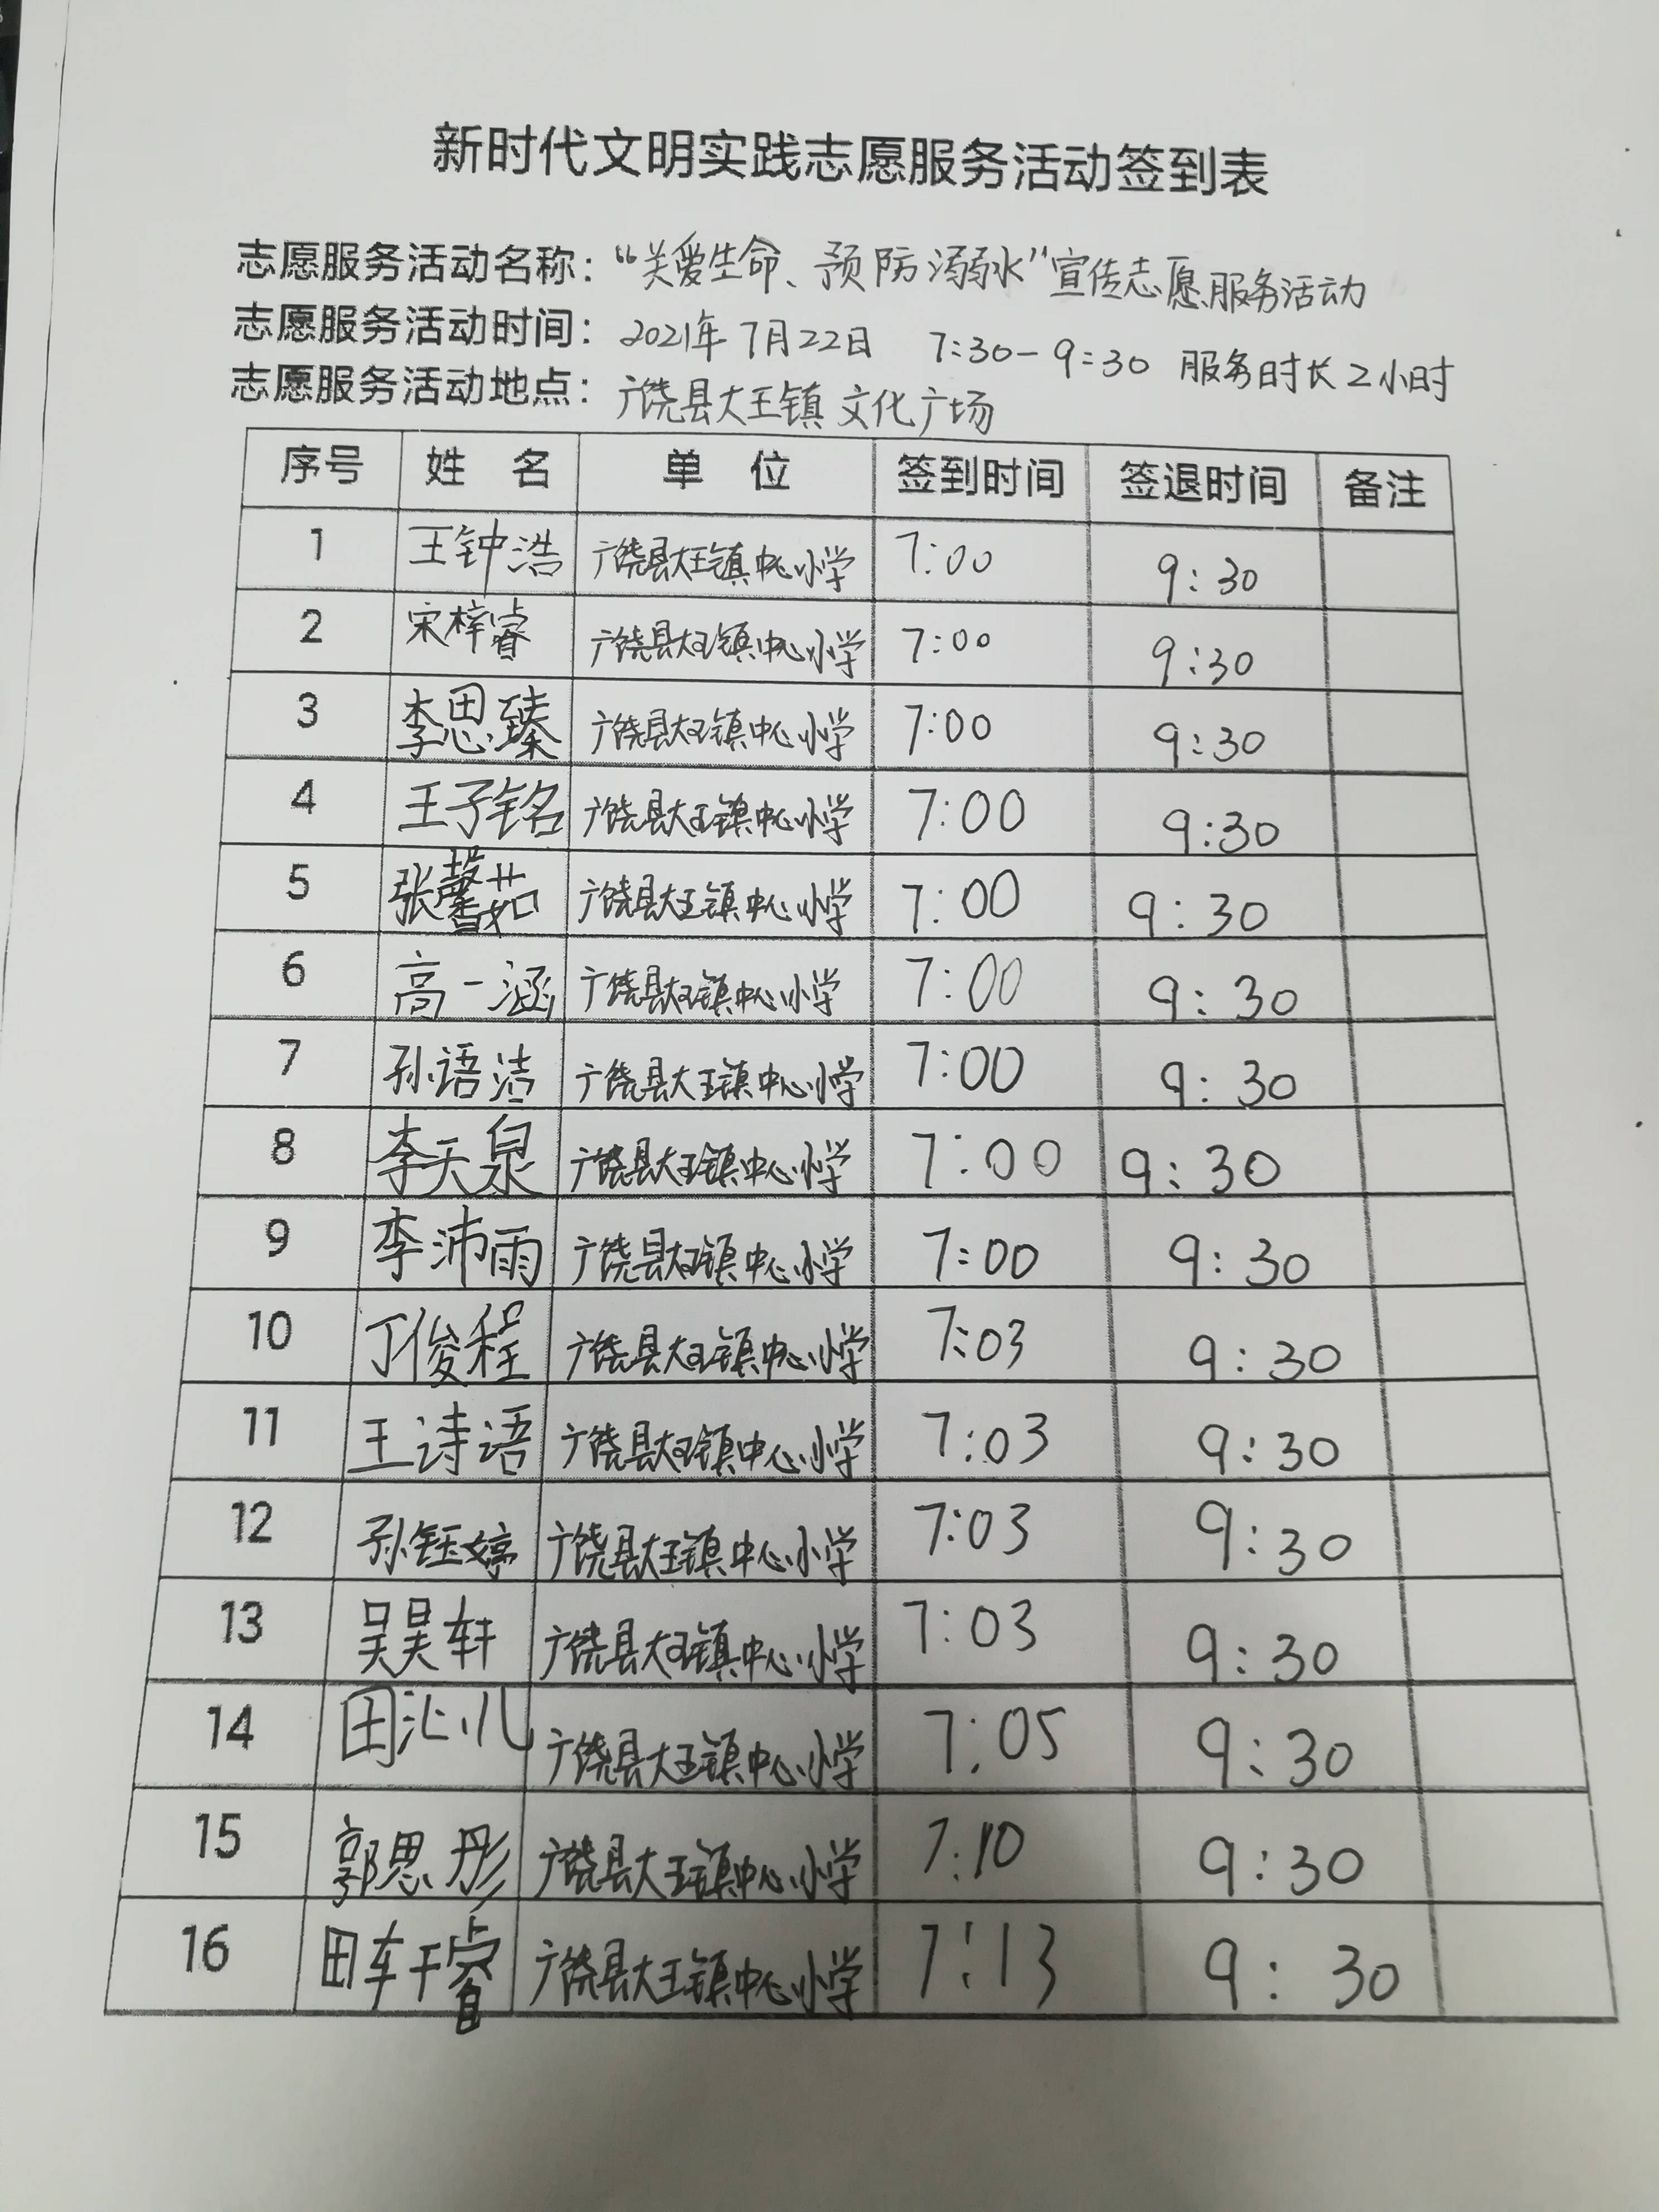 新时代文明实践志愿服务活动签到表
志愿服务活动名称：“关爱生命、预防溺水”宣传志愿服务活动
志愿服务活动时间：2021年7月22日 7:30-9:30 服务时长2小时
志愿服务活动地点：广饶县大王镇文化广场
序号 姓名 单位 签到时间 签退时间 备注
1 王钟浩 广饶县大王镇中心小学 7:00 9:30
2 宋梓睿 广饶县大王镇中心小学 7:00 9:30
3 李思臻 广饶县大王镇中心小学 7:00 9:30
4 王子铭 广饶县大王镇中心小学 7:00 9:30
5 张馨茹 广饶县大王镇中心小学 7:00 9:30
6 高一涵 广饶县大王镇中心小学 7:00 9:30
7 孙语洁 广饶县大王镇中心小学 7:00 9:30
8 李天泉 广饶县大王镇中心小学 7:00 9:30
9 李沛雨 广饶县大王镇中心小学 7:00 9:30
10 丁俊程 广饶县大王镇中心小学 7:03 9:30
11 王诗语 广饶县大王镇中心小学 7:03 9:30
12 孙钰婷 广饶县大王镇中心小学 7:03 9:30
13 吴昊轩 广饶县大王镇中心小学 7:03 9:30
14 田沁儿 广饶县大王镇中心小学 7:05 9:30
15 郭思彤 广饶县大王镇中心小学 7:10 9:30
16 田车干睿 广饶县大王镇中心小学 7:13 9:30